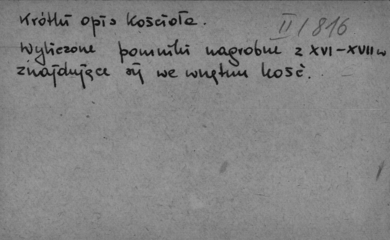 Krótki opis Kościoła. II/816
Wyliczone pomniki nagrobne z XVI-XVII w
znajdujące się we wnętrzu kość.